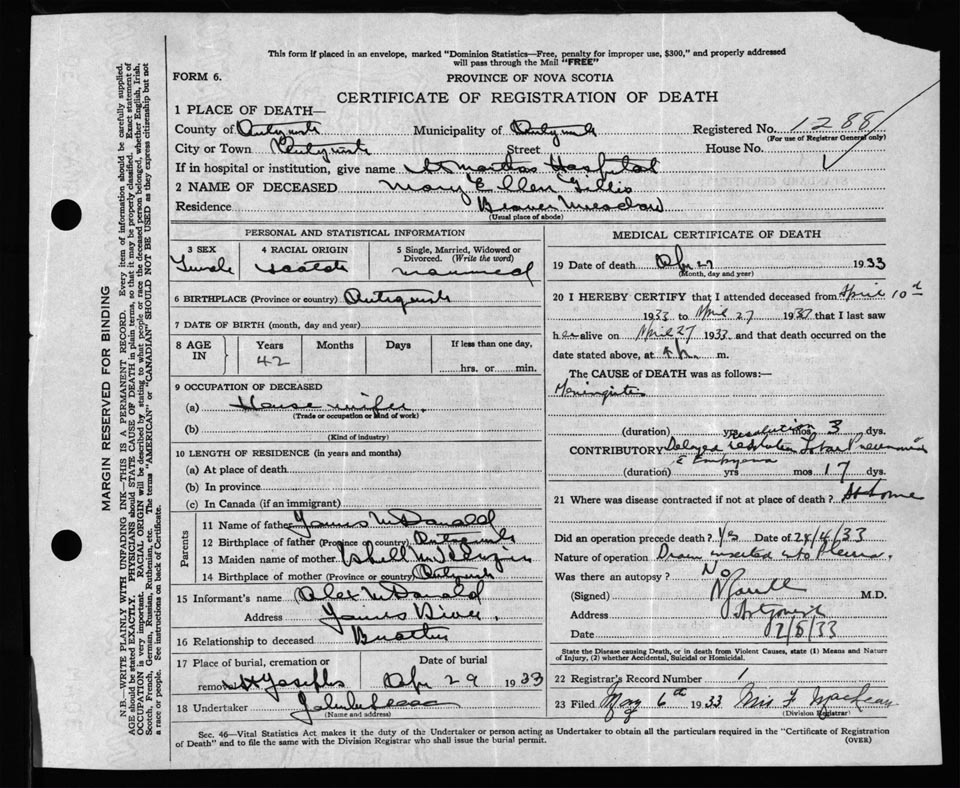 This form if placed in an envelope, marked "Dominion Statistics—Free, penalty for improper use, $300," and properly addressed
will pass through the Mail "FREE"
FORM 6.
PROVINCE OF NOVA SCOTIA
CERTIFICATE OF REGISTRATION OF DEATH
1 PLACE OF DEATH—
County of Antigonish Municipality of Antigonish Registered No. 1288
(For use of Registrar General only)
City or Town Antigonish Street House No.
If in hospital or institution, give name St Marthas Hospital
2 NAME OF DECEASED Mary Ellen Gillis
Residence Beaver Meadow
(Usual place of abode)
PERSONAL AND STATISTICAL INFORMATION
3 SEX 4 RACIAL ORIGIN 5 Single, Married, Widowed or Divorced. (Write the word)
Female Scotch married
6 BIRTHPLACE (Province or country) Antigonish
7 DATE OF BIRTH (month, day and year)
8 AGE IN Years Months Days If less than one day,
42 hrs. or min.
9 OCCUPATION OF DECEASED
(a) House wife.
(Trade or occupation or kind of work)
(b)
(Kind of industry)
10 LENGTH OF RESIDENCE (in years and months)
(a) At place of death
(b) In province
(c) In Canada (if an immigrant)
Parents
11 Name of father James McDonald
12 Birthplace of father (Province or country) Antigonish
13 Maiden name of mother
14 Birthplace of mother (Province or country) Antigonish
15 Informant's name Alex McDonald
Address James River.
16 Relationship to deceased Brother
17 Place of burial, cremation or removal St Josephs Date of burial Apr 29 1933
18 Undertaker
(Name and address)
MEDICAL CERTIFICATE OF DEATH
19 Date of death Apr 27 1933
(Month, day and year)
20 I HEREBY CERTIFY that I attended deceased from April 10th
1933 to April 27 1933 that I last saw
her alive on April 27 1933 and that death occurred on the
date stated above, at m.
The CAUSE of DEATH was as follows:—
Meningitis
(duration) yrs mos 3 dys.
resolution
CONTRIBUTORY Delayed Lobar Pneumonia
& Empyema
(duration) yrs mos 17 dys.
21 Where was disease contracted if not at place of death? At home
Did an operation precede death? Yes Date of 24/4/33
Nature of operation Drain inserted into Pleura.
Was there an autopsy? No
(Signed) M.D.
Address Antigonish
Date 2/5/33
State the Disease causing Death, or in death from Violent Causes, state (1) Means and Nature
of Injury, (2) whether Accidental, Suicidal or Homicidal.
22 Registrar's Record Number 1
23 Filed May 6th 1933 Miss F MacLean
(Division Registrar)
Sec. 46—Vital Statistics Act makes it the duty of the Undertaker or person acting as Undertaker to obtain all the particulars required in the "Certificate of Registration
of Death" and to file the same with the Division Registrar who shall issue the burial permit.
(OVER)
MARGIN RESERVED FOR BINDING
N.B.—WRITE PLAINLY WITH UNFADING INK—THIS IS A PERMANENT RECORD. Every item of information should be carefully supplied.
AGE should be stated EXACTLY. PHYSICIANS should STATE CAUSE OF DEATH in plain terms, so that it may be properly classified. Exact statement of
OCCUPATION is very important. RACIAL ORIGIN will be described by stating to what people or race the deceased person belonged, whether English, Irish,
Scotch, French, German, Russian, Ruthenian, etc. The terms "AMERICAN" or "CANADIAN" SHOULD NOT BE USED as they express citizenship but not
a race or people. See instructions on back of Certificate.